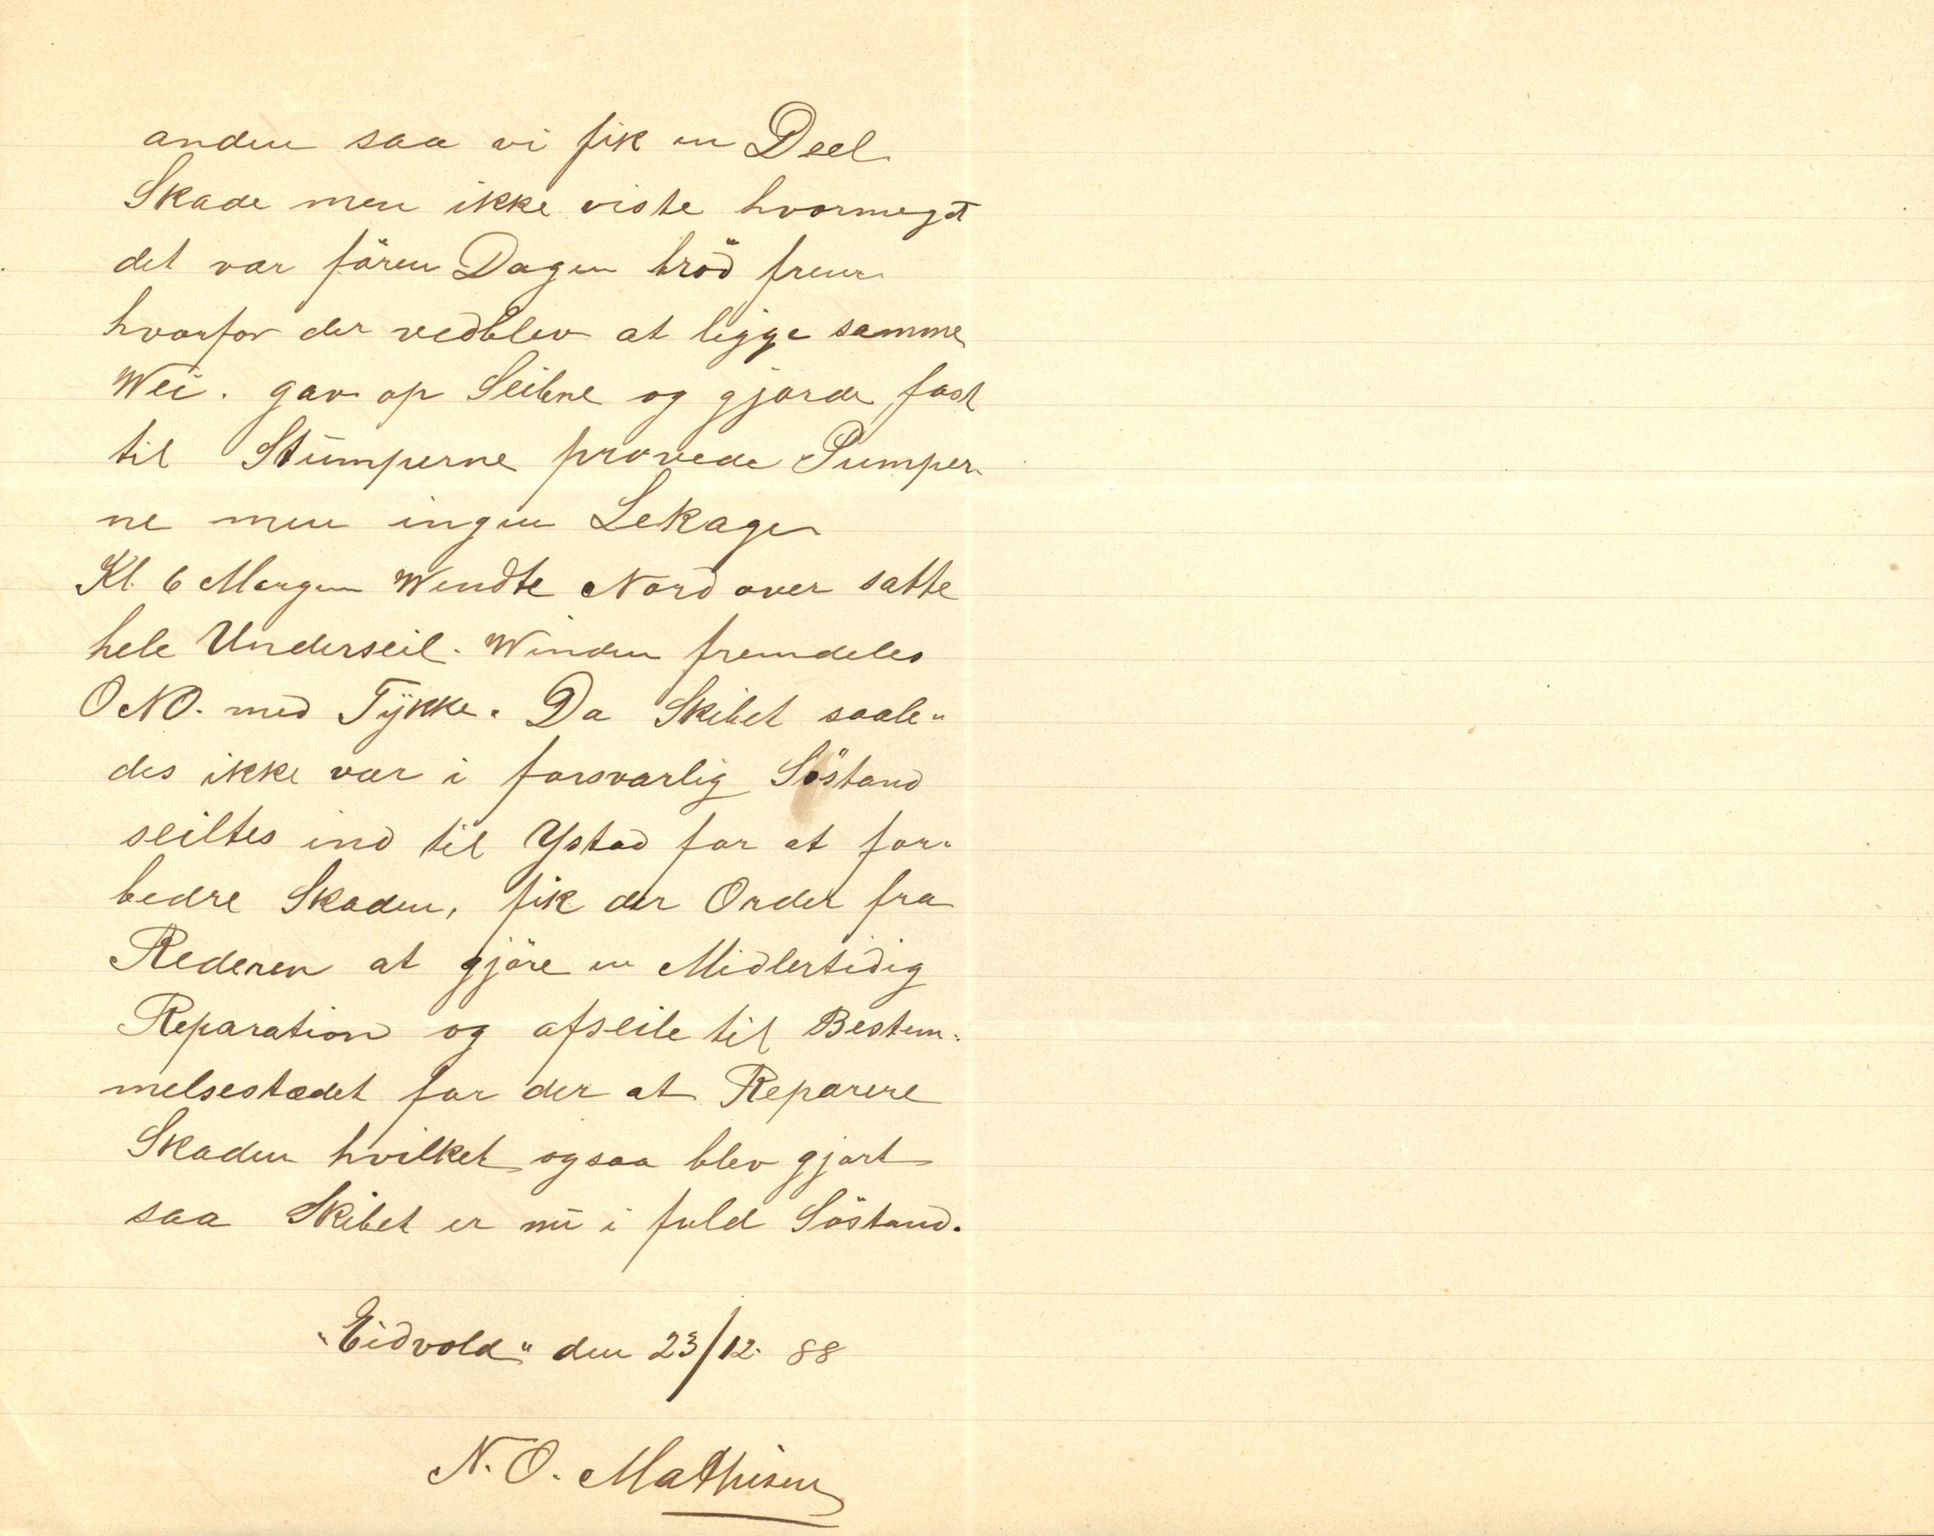 anden saa vi fik en Deel
Skade men ikke viste hvormeget
det var fören Dagen bröd frem
hvorfor der vedblev at ligge samme
Wei. gav op Seilene og gjorde fast
til Stumperne provede Pumper-
ne men ingen Lekage
Kl. 6 Morgen Wendte Nord over satte
hele Underseil. Winden fremdeles
ONO. med Tykke. Da Skibet saale-
des ikke var i forsvarlig Söstand
seiltes ind til Ystad for at for-
bedre Skaden, fik der Order fra
Rederen at gjöre en Midlertidig
Reparation og afseile til Bestem-
melsestædet for der at Reparere
Skaden hvilket ogsaa blev gjort
saa Skibet er nu i fuld Söstand.
"Eidvold" den 23/12. 88
N. O. Mathisen